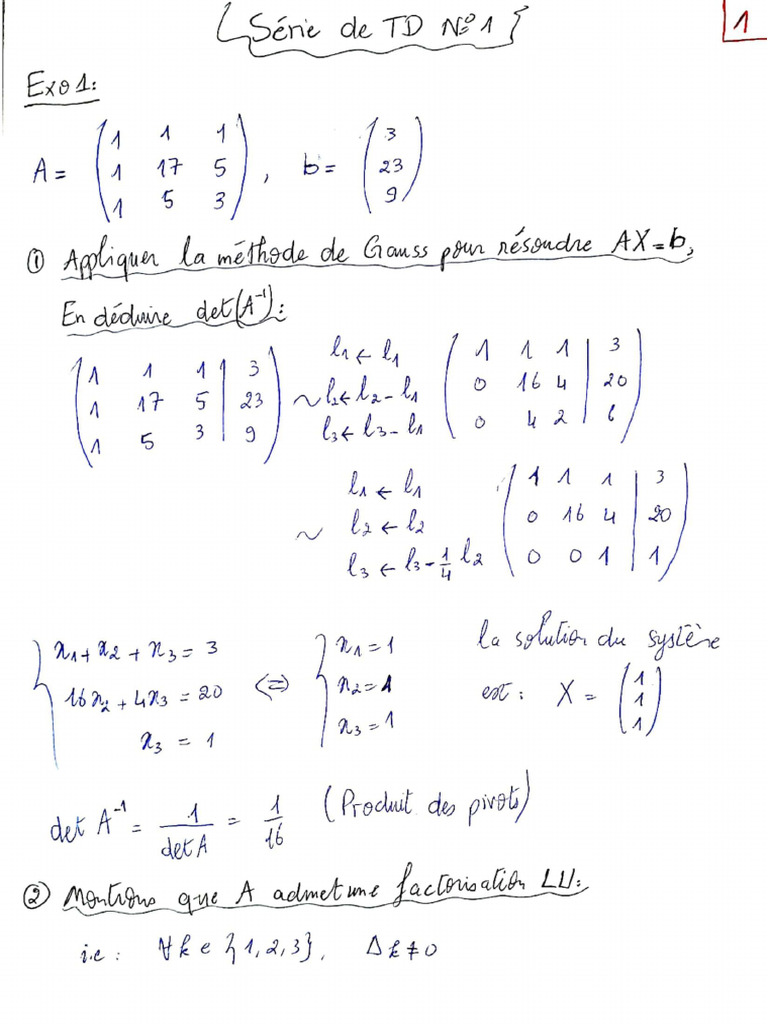 Série de TD N°1
1
Exo1:
A = ( 1 1 1 ; 1 17 5 ; 1 5 3 ) , b = ( 3 ; 23 ; 9 )
① Appliquer la méthode de Gauss pour résoudre AX=b,
En déduire det(A⁻¹):
( 1 1 1 | 3 ; 1 17 5 | 23 ; 1 5 3 | 9 ) ~ l₁ ← l₁ ; l₂ ← l₂ - l₁ ; l₃ ← l₃ - l₁ ( 1 1 1 | 3 ; 0 16 4 | 20 ; 0 4 2 | 6 )
~ l₁ ← l₁ ; l₂ ← l₂ ; l₃ ← l₃ - 1/4 l₂ ( 1 1 1 | 3 ; 0 16 4 | 20 ; 0 0 1 | 1 )
{ x₁ + x₂ + x₃ = 3 ; 16x₂ + 4x₃ = 20 ; x₃ = 1 ⇔ { x₁ = 1 ; x₂ = 1 ; x₃ = 1
la solution du système
est : X = ( 1 ; 1 ; 1 )
det A⁻¹ = 1/det A = 1/16 (Produit des pivots)
② Montrons que A admet une factorisation LU:
i.e : ∀k ∈ {1,2,3}, Δk ≠ 0